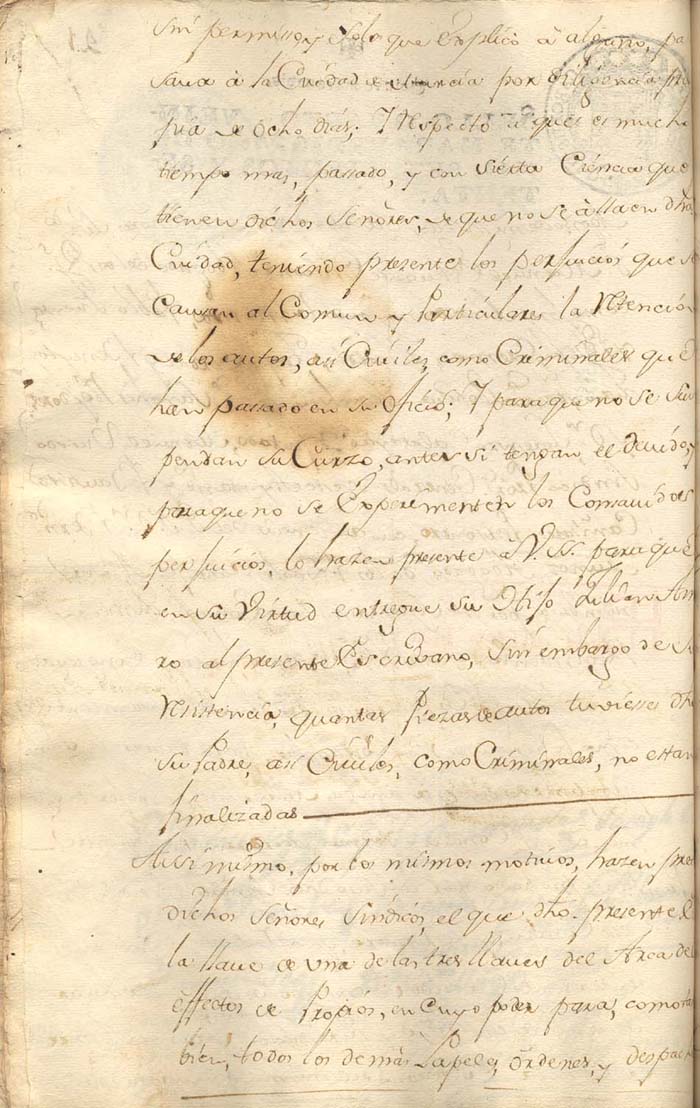 sin permisso, y solo que explicó á alguno, pa
sava à la Ciudad de Murcia por diligencia pro
pia de ocho dias; Y respecto a que es mucho
tiempo mas, passado, y con sierta Ciencia que
tienen dichos Señores, de que no se àlla en dha
Ciudad, teniendo presente los perjuicios que se
Causan al Comun y Particulares la retencion
de los autos, assi Civiles, como Criminales que
han passado en su Oficio; Y para que no se sus
pendan su Curzo, antes si tengan el devido, y
para que no se experimenten los
perjuicios, lo hazen presente a V. SS. para que
en su Virtud entregue su Hijo
ro al presente Escrivano, sin embargo de su
resistencia, quantas Piezas de autos tuviesse dho
su Padre, assi Civiles, como Criminales, no estan
finalizadas
Assi mismo, por los mismos motivos, hazen pres
dichos Señores Sindicos, el que dho. presente
la llave de una de las tres llaves del Arca de
effectos de Propios, en cuyo poder para, como ta
bien, todos los demas Papeles, órdenes, y despach